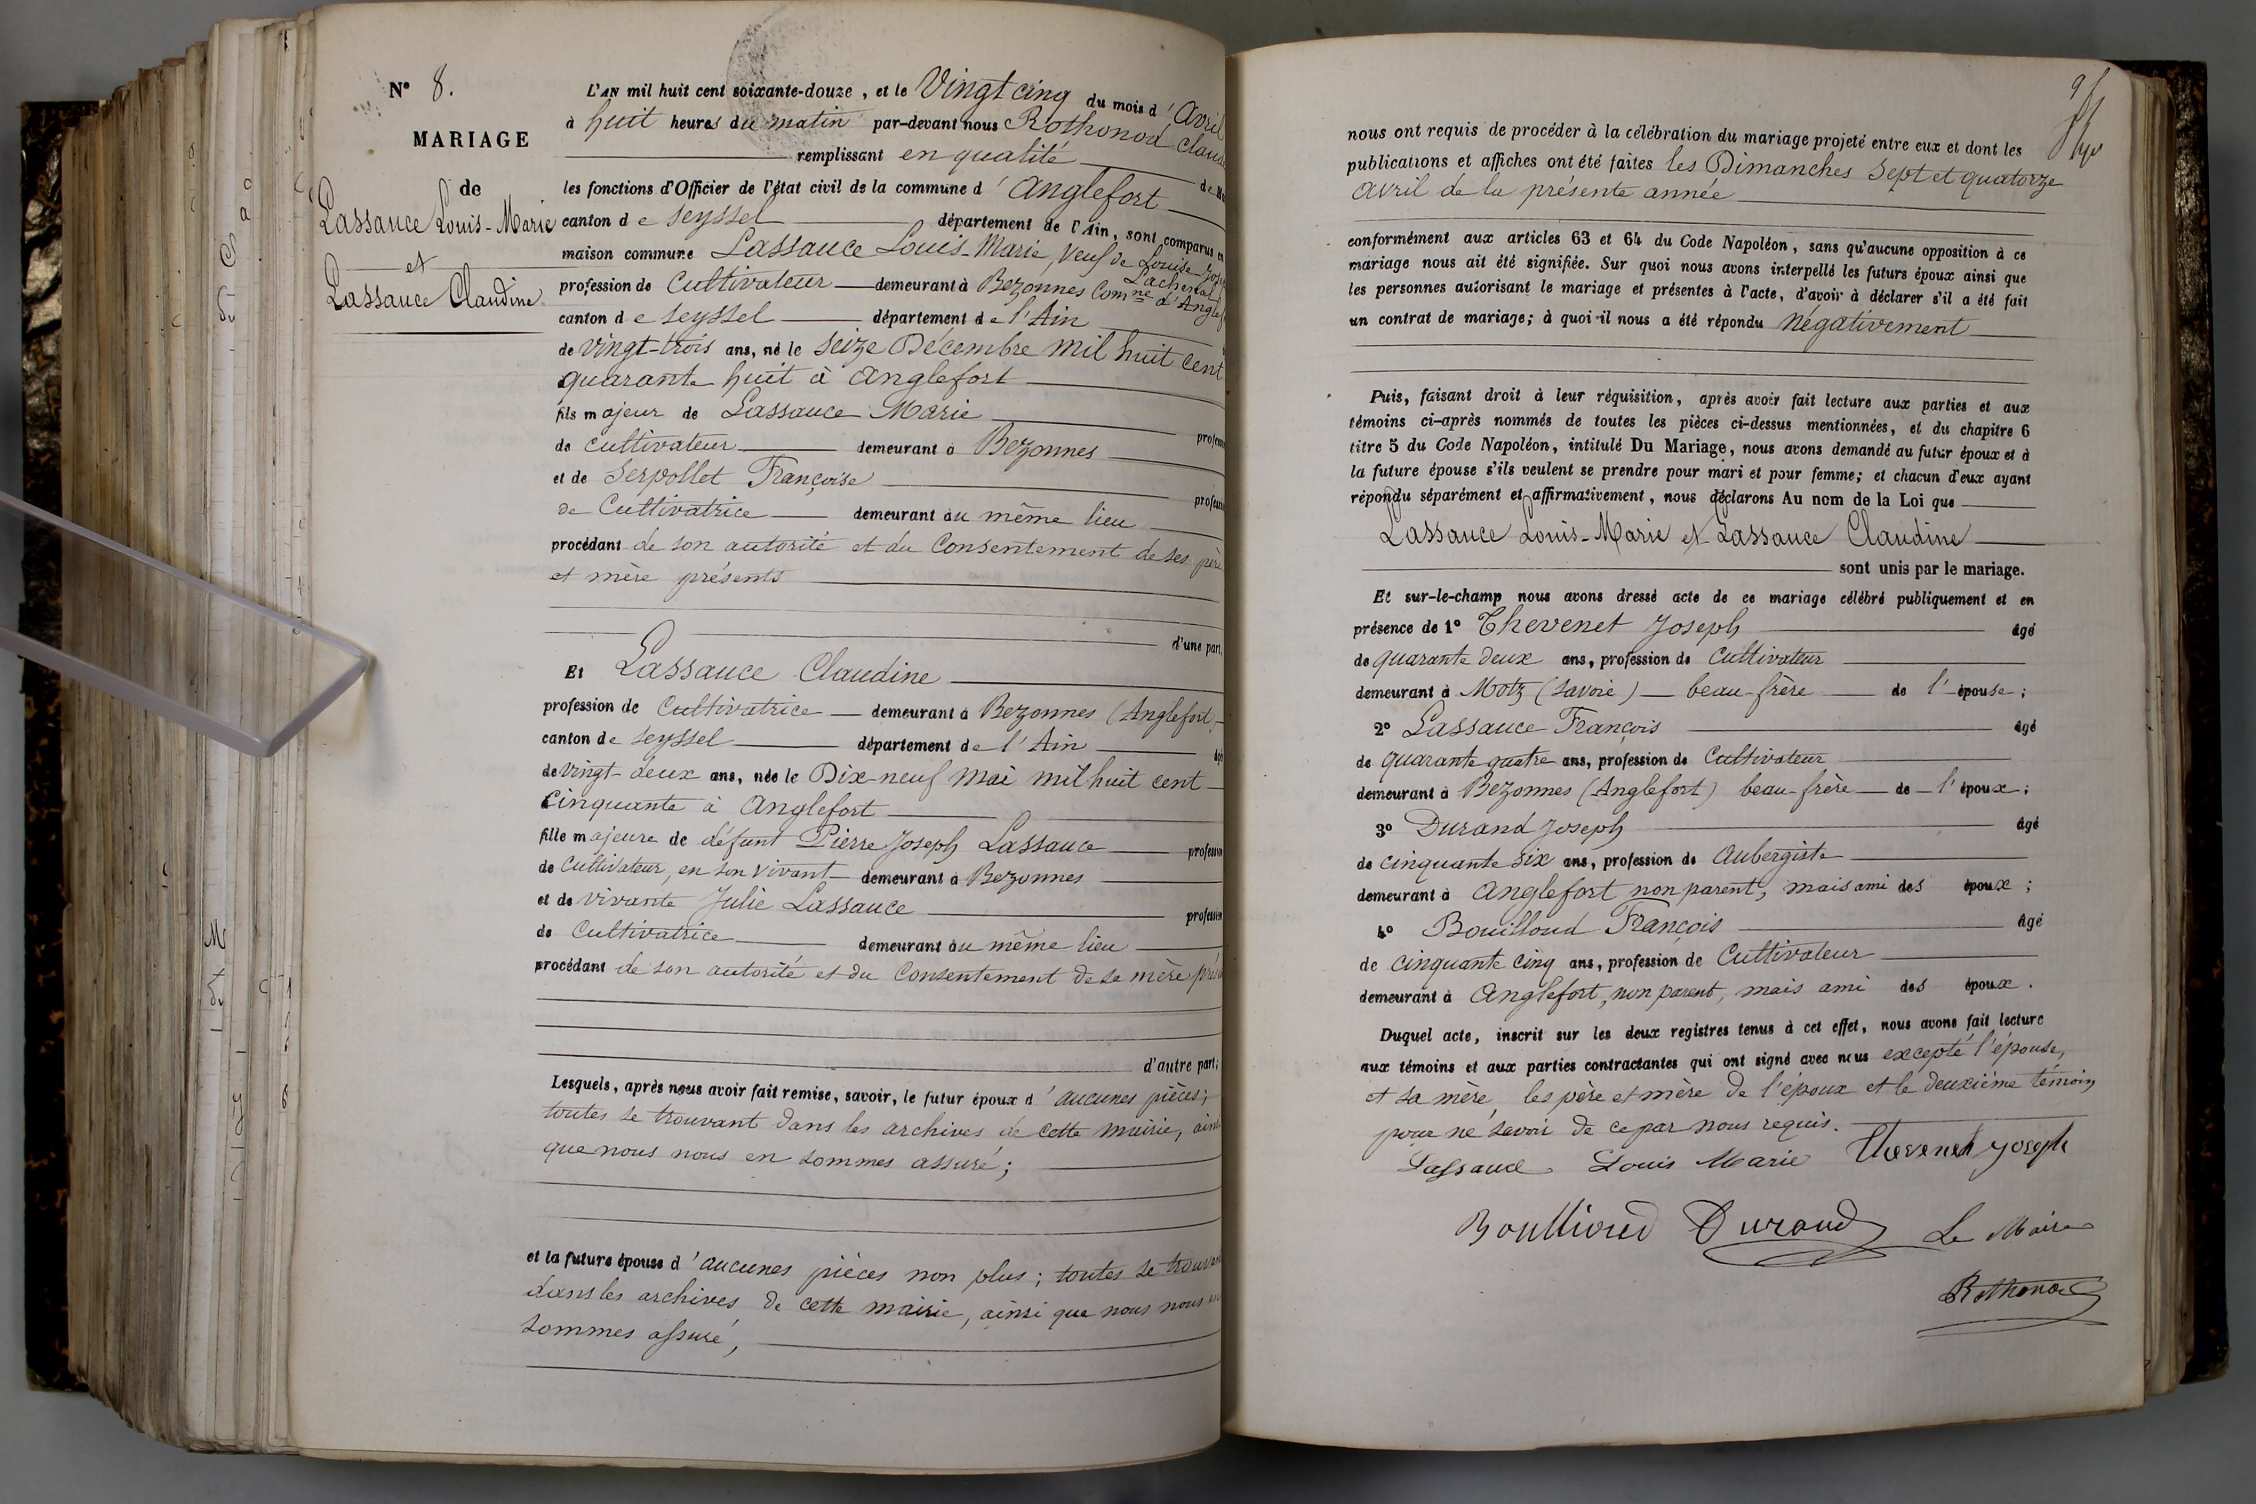 N° 8.
MARIAGE
de
Lassauce Louis-Marie
et
Lassauce Claudine
L'AN mil huit cent soixante-douze, et le Vingt cinq du mois d'Avril
à huit heures du matin par-devant nous Rothonod Claude
remplissant en qualité de
les fonctions d'Officier de l'état civil de la commune d'Anglefort
canton de Seyssel département de l'Ain, sont comparus en
maison commune Lassauce Louis-Marie, Veuf de Louise
Lachenal
profession de Cultivateur demeurant à Bezonnes Comne d'Anglef
canton de Seyssel département de l'Ain
de vingt-trois ans, né le Seize Décembre mil huit cent
quarante huit à Anglefort
fils majeur de Lassauce Marie profession
de cultivateur demeurant à Bezonnes
et de Serpollet Françoise profession
de Cultivatrice demeurant au même lieu
procédant de son autorité et du Consentement de ses père
et mère présents
d'une part.
Et Lassauce Claudine
profession de Cultivatrice demeurant à Bezonnes (Anglefort)
canton de Seyssel département de l'Ain âgé
de vingt-deux ans, née le Dix-neuf Mai mil huit cent
Cinquante à Anglefort
fille majeure de défunt Pierre Joseph Lassauce profession
de Cultivateur, en son vivant demeurant à Bezonnes
et de vivante Julie Lassauce profession
de Cultivatrice demeurant au même lieu
procédant de son autorité et du Consentement de sa mère
d'autre part;
Lesquels, après nous avoir fait remise, savoir, le futur époux d'aucunes pièces;
toutes se trouvant dans les archives de cette mairie, ainsi
que nous nous en sommes assuré;
et la future épouse d'aucunes pièces non plus; toutes se trouvant
dans les archives de cette mairie, ainsi que nous nous en
sommes assuré,
nous ont requis de procéder à la célébration du mariage projeté entre eux et dont les
publications et affiches ont été faites les Dimanches Sept et quatorze
avril de la présente année
conformément aux articles 63 et 64 du Code Napoléon, sans qu'aucune opposition à ce
mariage nous ait été signifiée. Sur quoi nous avons interpellé les futurs époux ainsi que
les personnes autorisant le mariage et présentes à l'acte, d'avoir à déclarer s'il a été fait
un contrat de mariage; à quoi il nous a été répondu négativement
Puis, faisant droit à leur réquisition, après avoir fait lecture aux parties et aux
témoins ci-après nommés de toutes les pièces ci-dessus mentionnées, et du chapitre 6
titre 5 du Code Napoléon, intitulé Du Mariage, nous avons demandé au futur époux et à
la future épouse s'ils veulent se prendre pour mari et pour femme; et chacun d'eux ayant
répondu séparément et affirmativement, nous déclarons Au nom de la Loi que
Lassauce Louis-Marie et Lassauce Claudine
sont unis par le mariage.
Et sur-le-champ nous avons dressé acte de ce mariage célébré publiquement et en
présence de 1° Thevenet Joseph âgé
de quarante deux ans, profession de Cultivateur
demeurant à Motz (Savoie) beau-frère de l'épouse;
2° Lassauce François âgé
de quarante quatre ans, profession de Cultivateur
demeurant à Bezonnes (Anglefort) beau-frère de l'époux;
3° Durand Joseph âgé
de cinquante six ans, profession de Aubergiste
demeurant à Anglefort non parent, mais ami des époux;
4° Bouilloud François âgé
de cinquante cinq ans, profession de Cultivateur
demeurant à Anglefort, non parent, mais ami des époux.
Duquel acte, inscrit sur les deux registres tenus à cet effet, nous avons fait lecture
aux témoins et aux parties contractantes qui ont signé avec nous excepté l'épouse,
et sa mère, les père et mère de l'époux et le deuxième témoin
pour ne savoir de ce par nous requis.
Lassauce Louis Marie Thevenet Joseph
Boullioud Durand Le Maire
Rothonod